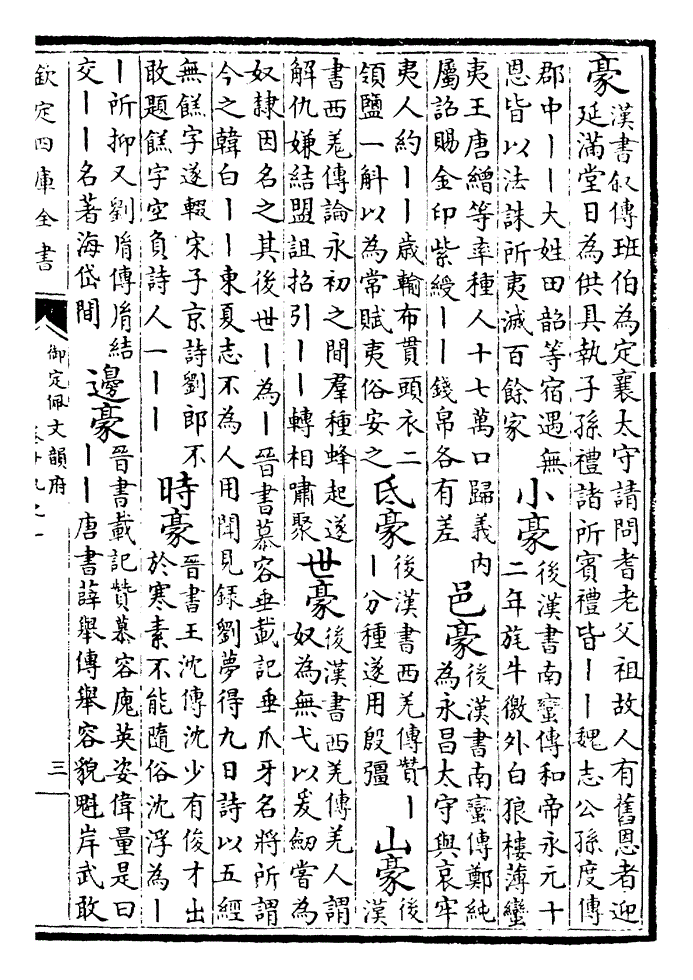 豪
漢書叙傳班伯為定襄太守請問耆老父祖故人有舊恩者迎
延滿堂日為供具執子孫禮諸所賓禮皆丨丨魏志公孫度傳
郡中丨丨大姓田韶等宿遇無
恩皆以法誅所夷滅百餘家
小豪
後漢書南蠻傳和帝永元十
二年旄牛徼外白狼樓薄蠻
夷王唐繒等率種人十七萬口歸義內
屬詔賜金印紫綬丨丨錢帛各有差
邑豪
後漢書南蠻傳鄭純
為永昌太守與哀牢
夷人約丨丨歲輸布貫頭衣二
領鹽一斛以為常賦夷俗安之
氐豪
後漢書西羌傳贊丨
丨分種遂用殷彊
山豪
後
漢
書西羌傳論永初之間羣種蜂起遂
解仇嫌結盟詛招引丨丨轉相嘯聚
世豪
後漢書西羌傳羌人謂
奴為無弋以爰劒嘗為
奴隷因名之其後世丨為丨晉書慕容垂載記垂爪牙名將所謂
今之韓白丨丨東夏志不為人用聞見録劉夢得九日詩以五經
無餻字遂輟宋子京詩劉郎不
敢題餻字空負詩人一丨丨
時豪
晉書王沈傳沈少有俊才出
於寒素不能隨俗沈浮為丨
丨所抑又劉胤傳胤結
交丨丨名著海岱間
邊豪
晉書載記贊慕容廆英姿偉量是曰
丨丨唐書薛舉傳舉容貌魁岸武敢
欽定四庫全書
御定佩文韻府
三